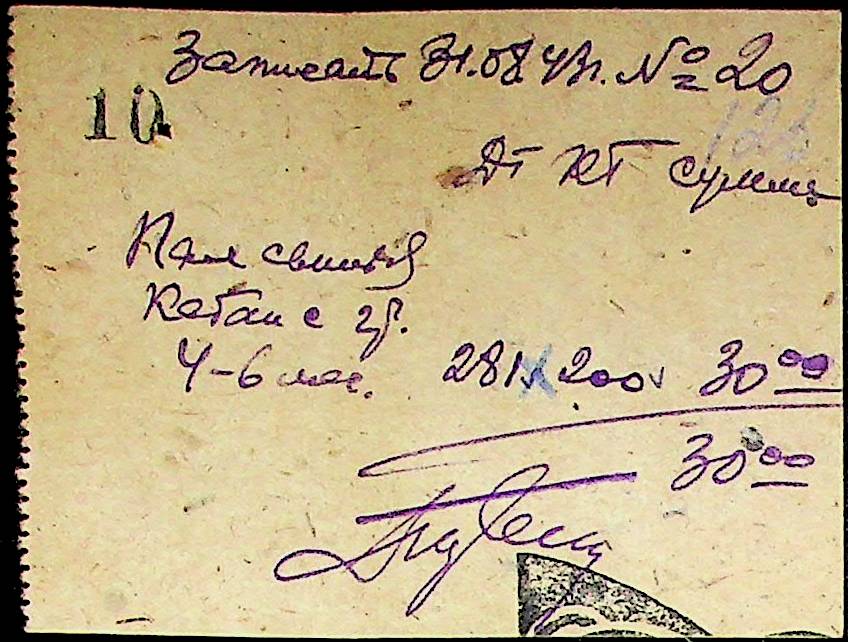 Записать 31.08.43г. № 20
10
125
Дт Кт сумма
Пала свинья
Кабан с гр.
4-6 мес. 281 200 30 00
30 00